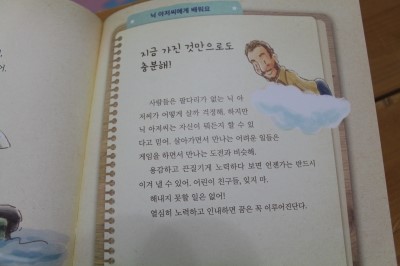 닉 아저씨에게 배워요
지금 가진 것만으로도
충분해!
사람들은 팔다리가 없는 닉 아
저씨가 어떻게 살까 걱정해. 하지만
닉 아저씨는 자신이 뭐든지 할 수 있
다고 믿어. 살아가면서 만나는 어려운 일들은
게임을 하면서 만나는 도전과 비슷해.
용감하고 끈질기게 노력하다 보면 언젠가는 반드시
이겨 낼 수 있어. 어린이 친구들, 잊지 마.
해내지 못할 일은 없어!
열심히 노력하고 인내하면 꿈은 꼭 이루어진단다.